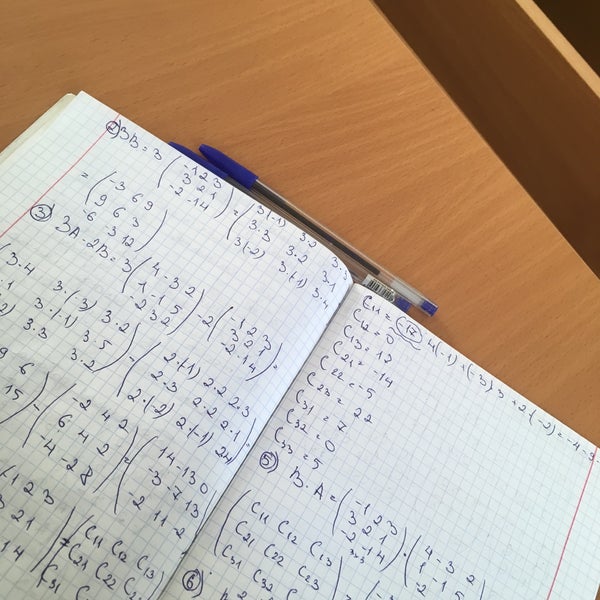 ② 3B = 3 (-1 2 3
3 2 1
-2 -1 4) = (3·(-1) 3·2 3·3
3·3 3·2 3·1
3(-2) 3·(-1) 3·4
= (-3 6 9
9 6 3
-6 3 12)
③ 3A - 2B = 3 (4 -3 2
1 -1 5
-2 3 2) - 2 (-1 2 3
3 2 1
-2 -1 4) =
(3·4 3·(-3) 3·2
·1 3·(-1) 3·5
3·3 3·2) - (2·(-1) 2·2 2·3
2·3 2·2 2·1
2·(-2) 2·(-1) 24)
9 6
15) - (-2 4 2
6 4 2
-4 -2 8) = (14 -13 0
-3 -7 13
-2 11 -2
1 2 3
3 2 1
1 4) = (C11 C12 C13
C21 C22 C2
C31
C11 = (-17) 4(-1) + (-3) 3 + 2·(-2) = -4 - 9 -
C12 = 0
C13 = 12
C21 = -14
C22 = -5
C23 = 22
C31 = 7
C32 = 0
C33 = 5
⑤ B·A = (-1 2 3
3 2 1
-2 -1 4) · (4 -3 2
1 -1 5
-2
(C11 C12 C13
C21 C22 C23
C31 C32
⑥